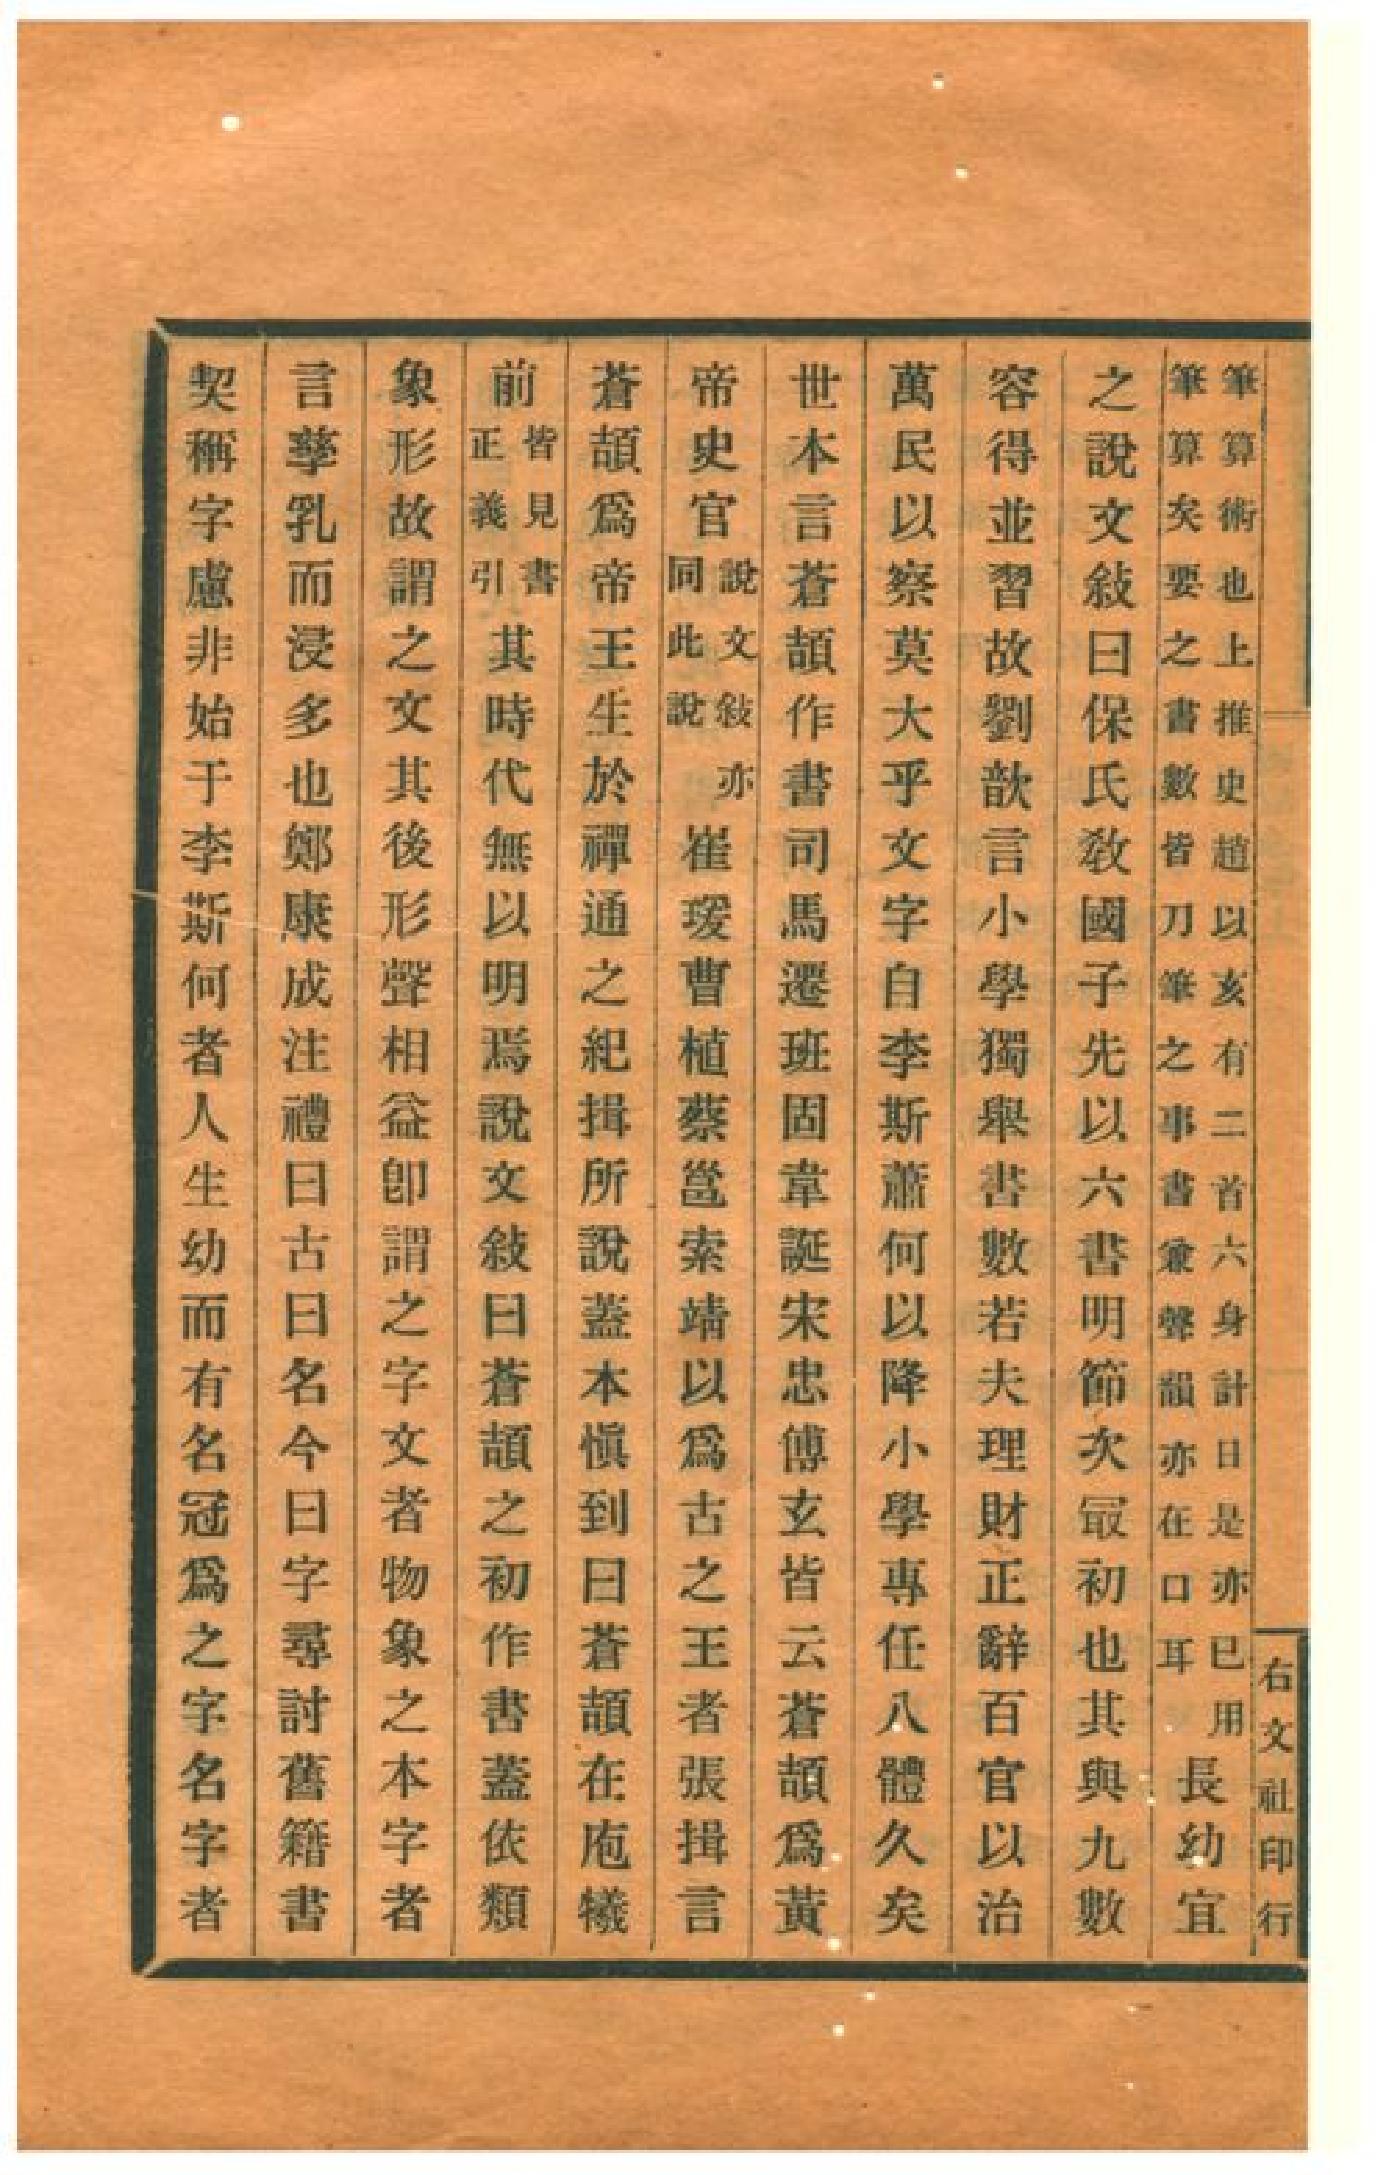 筆算術也上推史趙以亥有二首六身計日是亦已用
筆算矣要之書數皆刀筆之事書兼聲韻亦在口耳
長幼宜
之說文敍曰保氏敎國子先以六書明節次冣初也其與九數
容得並習故劉歆言小學獨舉書數若夫理財正辭百官以治
萬民以察莫大乎文字自李斯蕭何以降小學專任八體久矣
世本言蒼頡作書司馬遷班固韋誕宋忠傅玄皆云蒼頡爲黃
帝史官
說文敍亦
同此說
崔瑗曹植蔡邕索靖以爲古之王者張揖言
蒼頡爲帝王生於禪通之紀揖所說蓋本愼到曰蒼頡在庖犧
前
皆見書
正義引
其時代無以明焉說文敍曰蒼頡之初作書蓋依類
象形故謂之文其後形聲相益卽謂之字文者物象之本字者
言孳乳而浸多也鄭康成注禮曰古曰名今曰字尋討舊籍書
契稱字慮非始于李斯何者人生幼而有名冠爲之字名字者
右文社印行